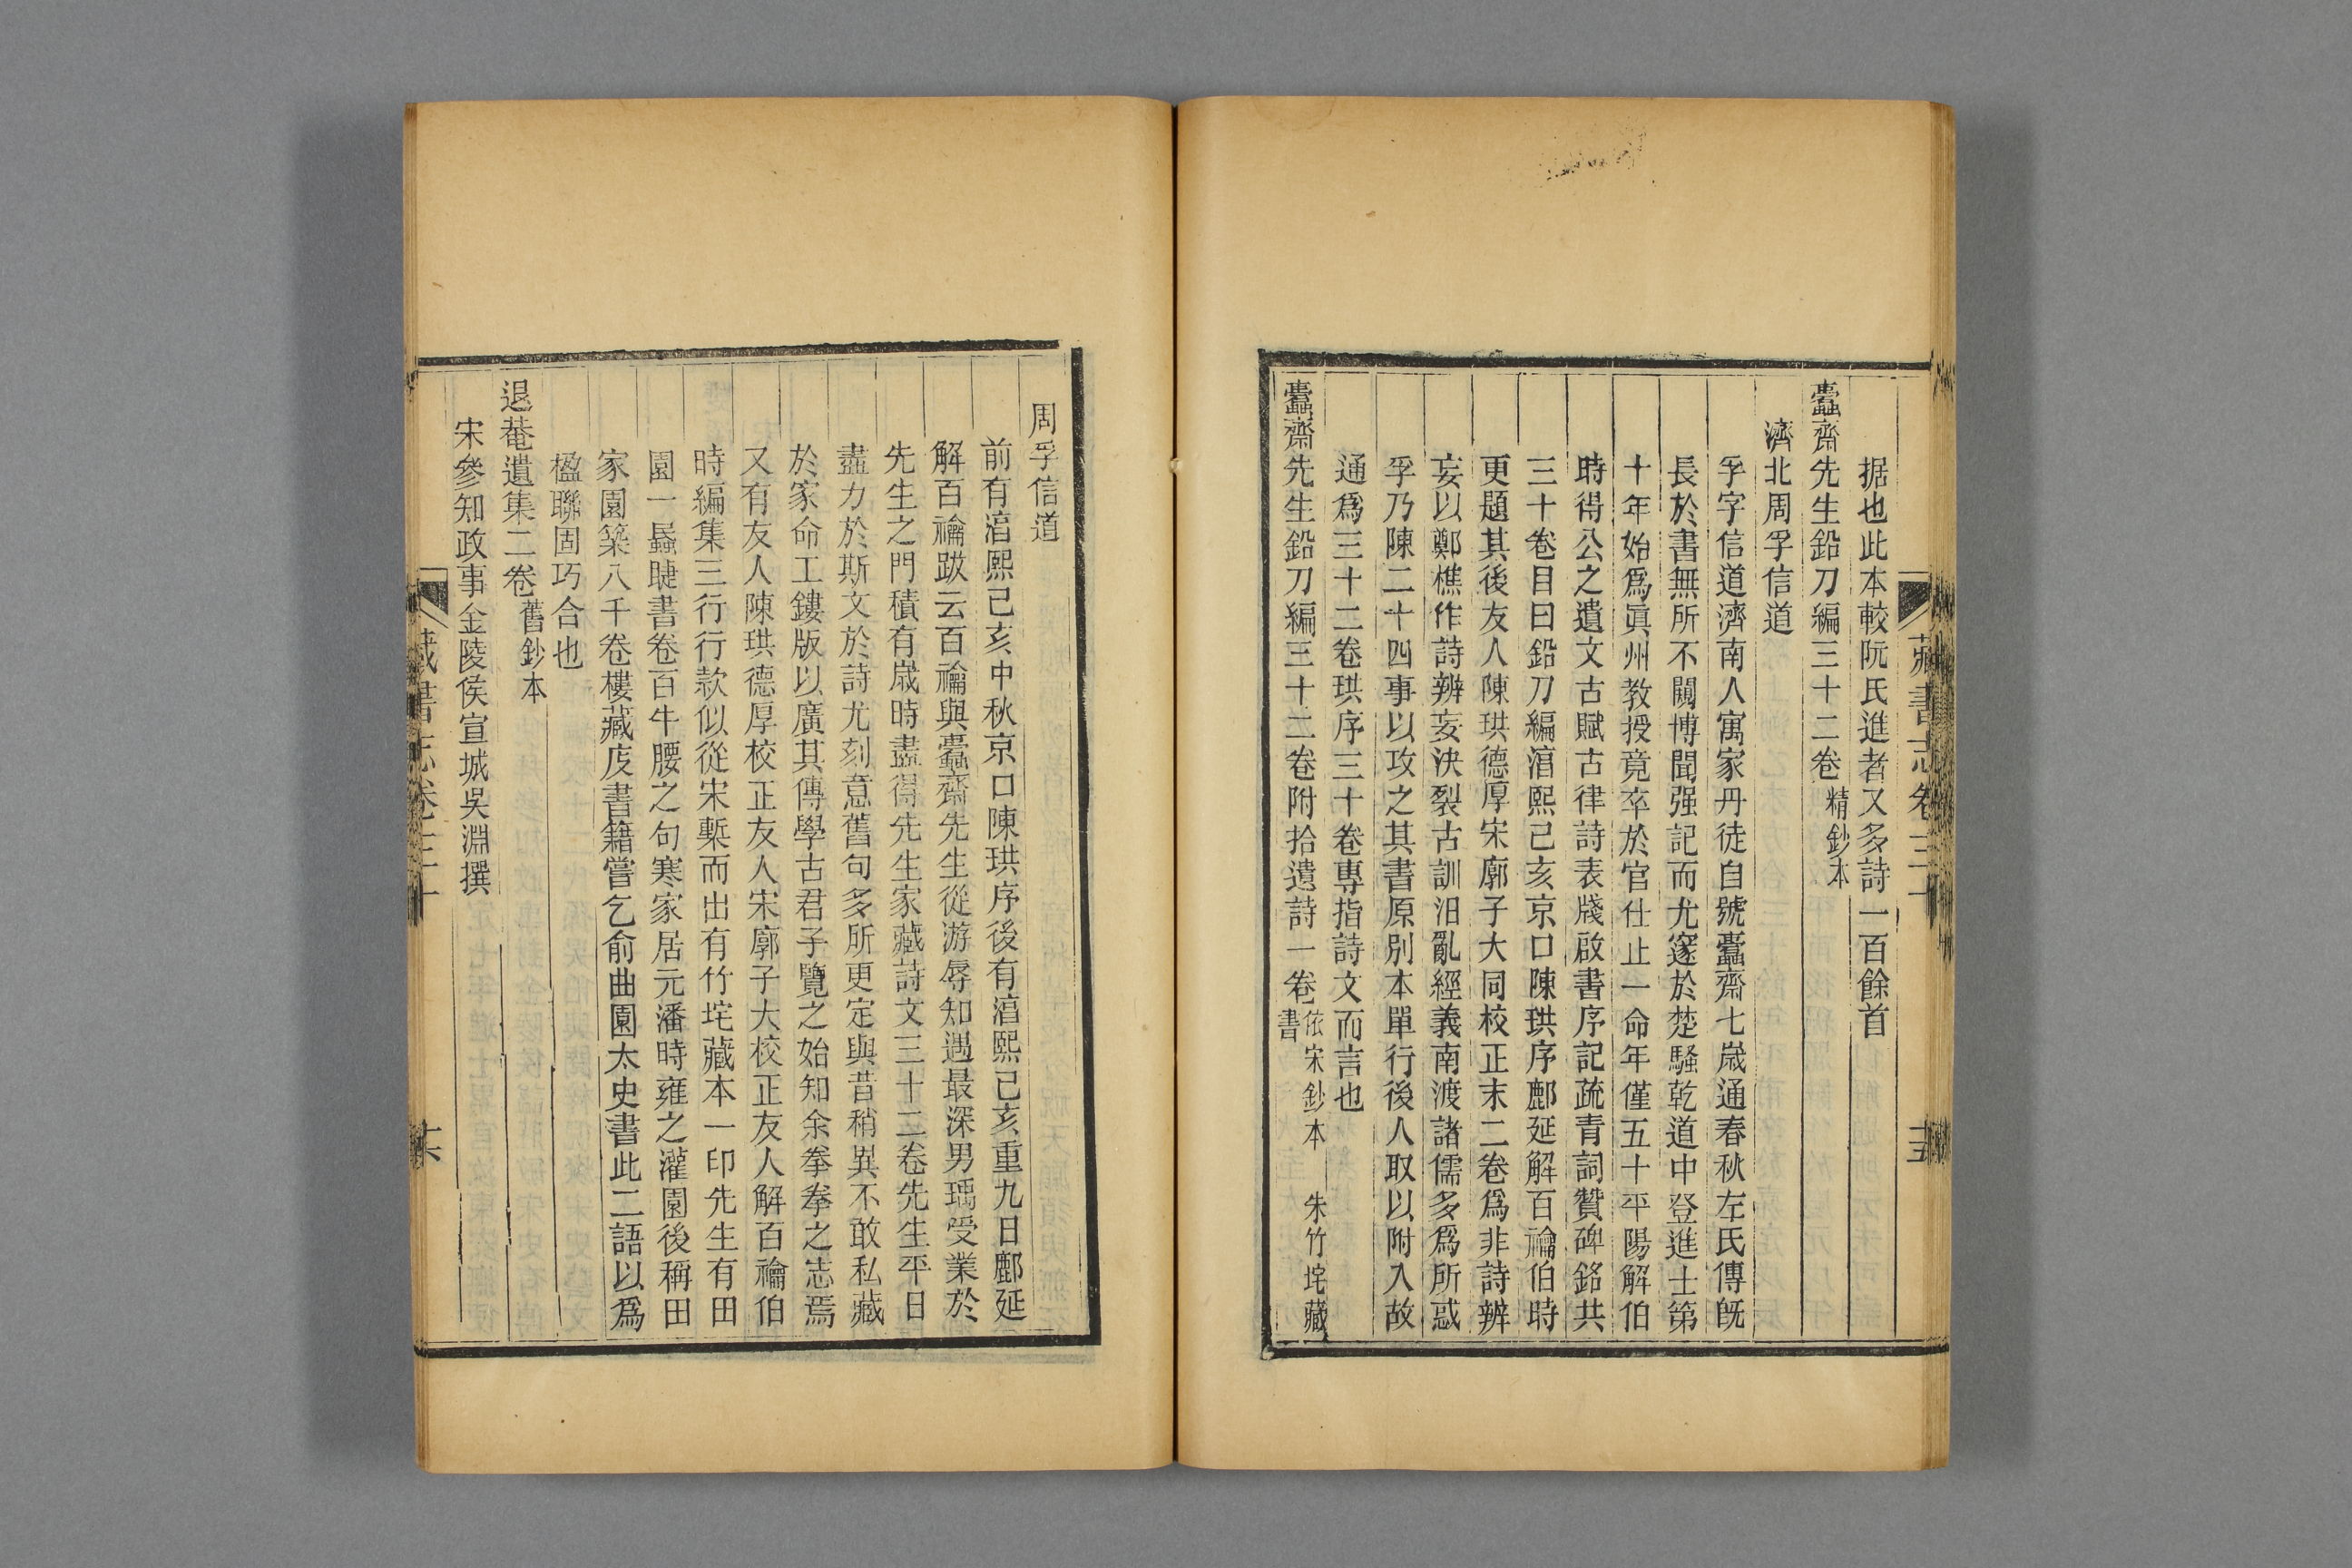 据也此本較阮氏進者又多詩一百餘首
蠹齋先生鉛刀編三十二卷精鈔本
濟北周孚信道
孚字信道濟南人寓家丹徒自號蠹齋七歲通春秋左氏傳旣
長於書無所不闚博聞强記而尤邃於楚騷乾道中登進士第
十年始爲眞州教授竟卒於官仕止一命年僅五十平陽解伯
時得公之遺文古賦古律詩表牋啟書序記疏青詞贊碑銘共
三十卷目曰鉛刀編淯熙己亥京口陳珙序鄜延解百禴伯時
更題其後友人陳珙德厚宋廓子大同校正末二卷爲非詩辨
妄以鄭樵作詩辨妄決裂古訓汨亂經義南渡諸儒多爲所惑
孚乃陳二十四事以攻之其書原別本單行後人取以附入故
通爲三十二卷珙序三十卷專指詩文而言也
蠹齋先生鉛刀編三十二卷附拾遺詩一卷依宋鈔本 朱竹垞藏書
藏書志卷三十
十五
周孚信道
前有淯熙己亥中秋京口陳珙序後有淯熙己亥重九日鄜延
解百禴跋云百禴與蠹齋先生從游辱知遇最深男瑀受業於
先生之門積有歲時盡得先生家藏詩文三十二卷先生平日
盡力於斯文於詩尤刻意舊句多所更定與昔稍異不敢私藏
於家命工鏤版以廣其傳學古君子覽之始知余拳拳之志焉
又有友人陳珙德厚校正友人宋廓子大校正友人解百禴伯
時編集三行行款似從宋槧而出有竹垞藏本一印先生有田
園一蝨睫書卷百牛腰之句寒家居元潘時雍之灌園後稱田
家園築八千卷樓藏庋書籍嘗乞俞曲園太史書此二語以爲
楹聯固巧合也
退菴遺集二卷舊鈔本
宋參知政事金陵侯宣城吳淵撰
藏書志卷三十
十六